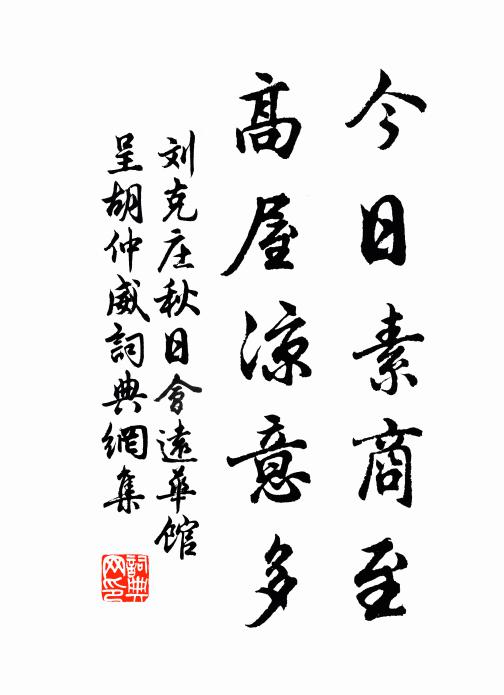 今日素商至
高屋涼意多
刘克庄秋日會遠華館
呈胡仲威詞典網集
詞典
网印